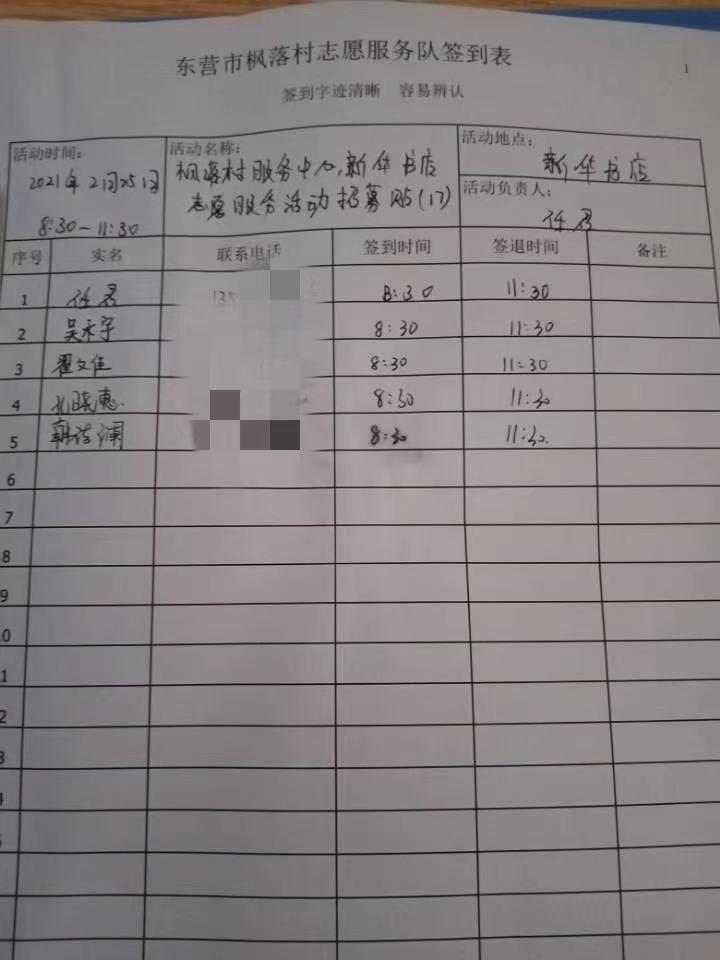 东营市枫落村志愿服务队签到表
1
签到字迹清晰 容易辨认
活动时间:
2021年2月25日
8:30-11:30
活动名称:
枫落村服务中心,新华书店
志愿服务活动招募贴(17)
活动地点:
新华书店
活动负责人:
任君
序号 实名 联系电话 签到时间 签退时间 备注
1 任君 135 8:30 11:30
2 吴永宇 8:30 11:30
3 翟文佳 8:30 11:30
4 晓惠 8:30 11:30
5 8:30 11:30
6
7
8
9
0
1
2
3
4